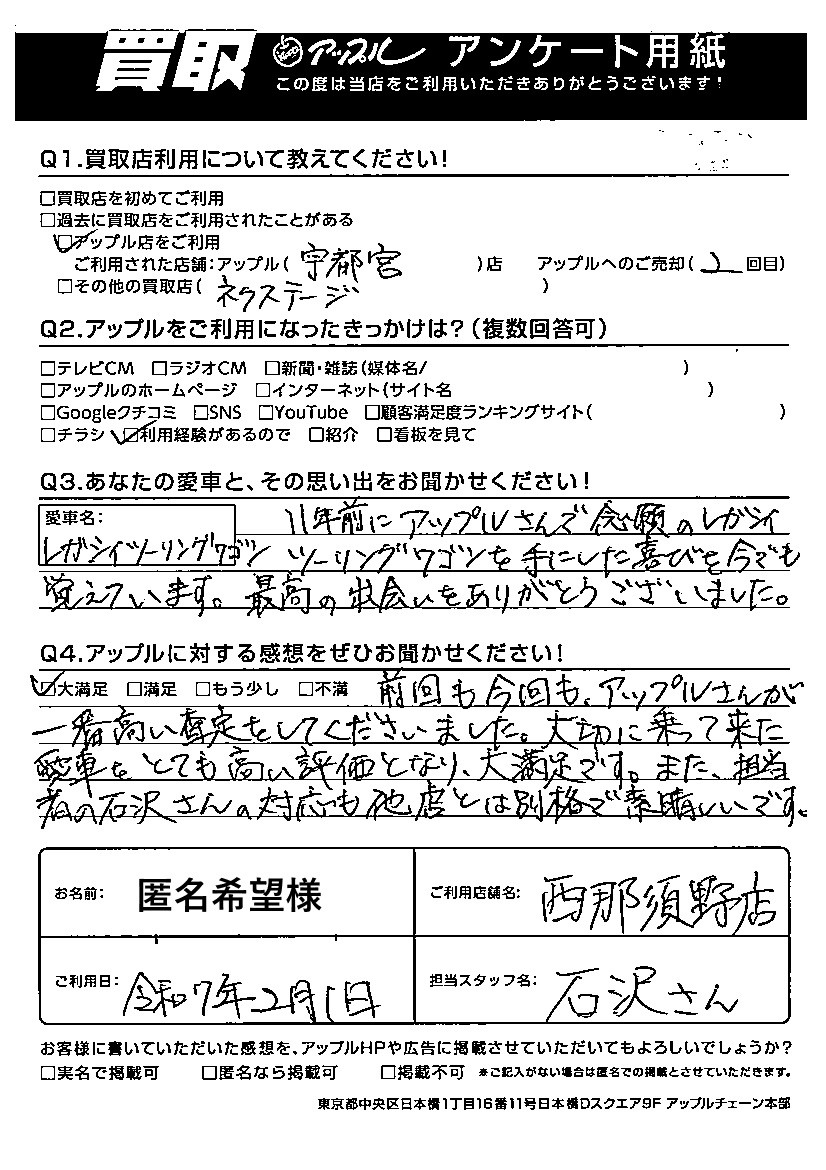 買取 アップル アンケート用紙
この度は当店をご利用いただきありがとうございます!
Q1.買取店利用について教えてください!
□買取店を初めてご利用
□過去に買取店をご利用されたことがある
☑アップル店をご利用
ご利用された店舗:アップル( 宇都宮 )店 アップルへのご売却( 2 回目)
□その他の買取店( ネクステージ )
Q2.アップルをご利用になったきっかけは?(複数回答可)
□テレビCM □ラジオCM □新聞・雑誌(媒体名/ )
□アップルのホームページ □インターネット(サイト名 )
□Googleクチコミ □SNS □YouTube □顧客満足度ランキングサイト( )
□チラシ ☑利用経験があるので □紹介 □看板を見て
Q3.あなたの愛車と、その思い出をお聞かせください!
愛車名:
レガシィツーリングワゴン
11年前にアップルさんで念願のレガシィ
ツーリングワゴンを手にした喜びを今でも
覚えています。最高の出会いをありがとうございました。
Q4.アップルに対する感想をぜひお聞かせください!
☑大満足 □満足 □もう少し □不満 前回も今回も、アップルさんが
一番高い査定をしてくださいました。大切に乗って来た
愛車をとても高い評価となり、大満足です。また、担当
者の石沢さんの対応も他店とは別格で素晴しいです。
お名前: 匿名希望様 ご利用店舗名: 西那須野店
ご利用日: 令和7年2月1日 担当スタッフ名: 石沢さん
お客様に書いていただいた感想を、アップルHPや広告に掲載させていただいてもよろしいでしょうか?
□実名で掲載可 □匿名なら掲載可 □掲載不可 *ご記入がない場合は匿名での掲載とさせていただきます。
東京都中央区日本橋1丁目16番11号日本橋Dスクエア9F アップルチェーン本部